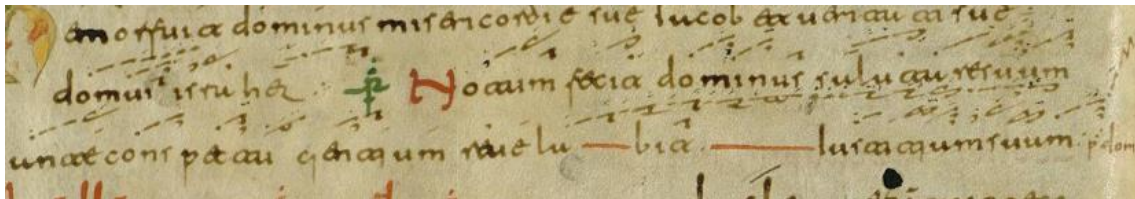 Memor fuit dominus misericordie sue iacob et ueritati sue
domui israhel ℣ Notum fecit dominus salutare suum
ante conspectu gentium reuela bit iustitiam suam p dom